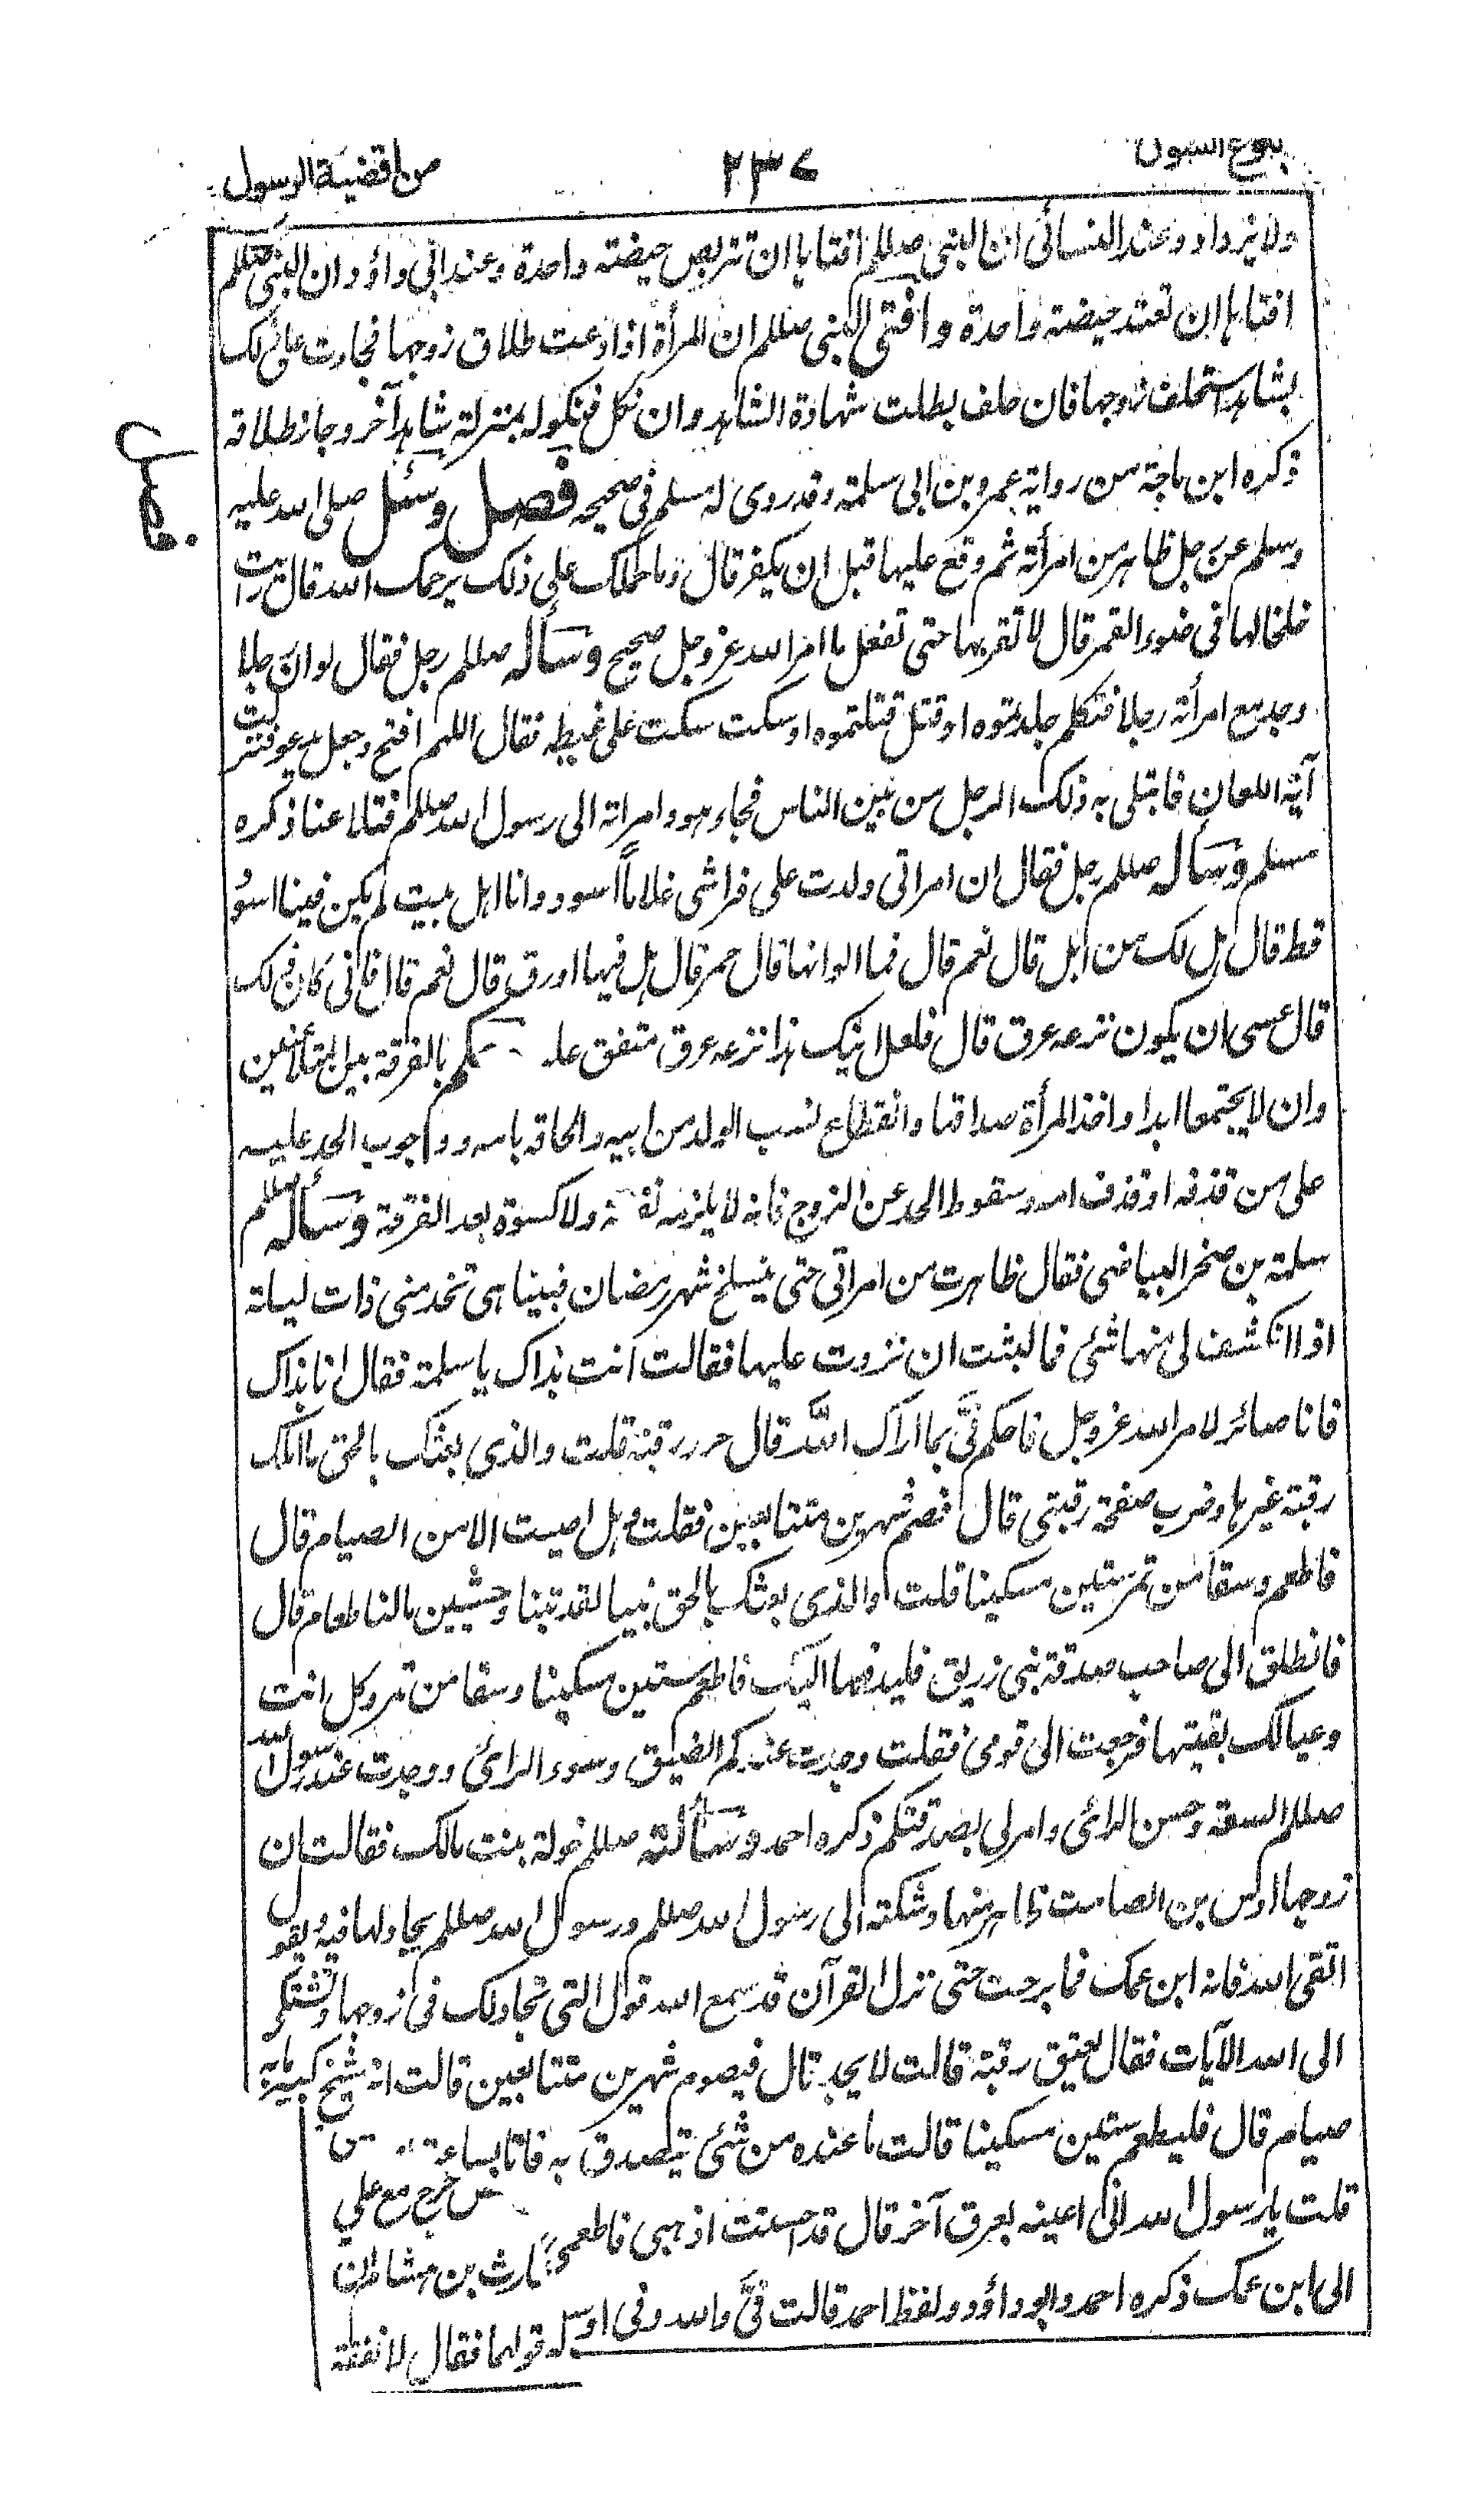 بلوغ السول ٢٣٧ من اقضية الرسول
ولا يزداد وعند النسائى ان النبى صللم افتاها ان تتربص حيضته واحدة وعند ابى داؤد ان النبى صللم
افتاها ان تعتد حيضته واحدة وافتى النبى صللم ان المرأة اذا ادعت طلاق زوجها فجاءت على ذلك
بشاهد استحلف زوجها فان حلف بطلت شهادة الشاهد وان نكل فنكوله بمنزلة شاهد آخر وجاز طلاقه
ذكره ابن ماجة من رواية عمرو بن ابى سلمة وقد روى له مسلم فى صحيحه فصل وسئل صلى الله عليه
وسلم عن رجل ظاهر من امرأته ثم وقع عليها قبل ان يكفر قال وما حملك على ذلك يرحمك الله قال رأيت
خلخالها فى ضوء القمر قال لا تقربها حتى تفعل ما امر الله عز وجل صحيح وسأله صللم رجل فقال لو ان رجلا
وجد مع امرأته رجلا فتكلم جلدتموه او قتل قتلتموه او سكت سكت على غيظه فقال اللهم افتح وجعل يدعو فنزلت
آية اللعان فابتلى به ذلك الرجل من بين الناس فجاء هو وامراته الى رسول الله صللم فتلاعنا ذكره
مسلم وسأله صللم رجل فقال ان امراتى ولدت على فراشى غلاماً اسود وانا اهل بيت لم يكن فينا اسود
قط قال هل لك من ابل قال نعم قال فما الوانها قال حمر قال هل فيها اورق قال نعم قال فانى كان ذلك
قال عسى ان يكون نزعه عرق قال فلعل ابنك هذا نزعه عرق متفق عليه وحكم بالفرقة بين المتلاعنين
وان لا يجتمعا ابدا واخذ المرأة صداقها وانقطاع نسب الولد من ابيه والحاقه بامه ووجوب الحد عليه
على من قذفه او قذف امه وسقوط الحد عن الزوج فانه لا يلزمه نفقة ولا كسوة بعد الفرقة وسأله صللم
سلمة بن صخر البياضى فقال ظاهرت من امراتى حتى ينسلخ شهر رمضان فبينا هى تخدمنى ذات ليلة
اذا انكشف لى منها شئ فما لبثت ان نزوت عليها فقالت انت بذاك يا سلمة فقال انا بذاك
فانا صائر لامر الله عز وجل فاحكم فىَّ بما اراك اللّٰه قال حرر رقبة قلت والذى بعثك بالحق ما املك
رقبة غيرها وضرب صفحة رقبتى قال فصم شهرين متتابعين فقلت وهل اصبت الا من الصيام قال
فاطعم وسقا من تمر ستين مسكينا قلت والذى بعثك بالحق نبيا لقد بتنا وحشيين مالنا طعام قال
فانطلق الى صاحب صدقة بنى زريق فليدفعها اليك فاطعم ستين مسكينا وسقا من تمر وكل انت
وعيالك بقيتها فرجعت الى قومى فقلت وجدت عندكم الضيق وسوء الرائ ووجدت عند رسول الله
صللم السعة وحسن الرائ وامر لى بصدقتكم ذكره احمد وسألته صللم خولة بنت مالك فقالت ان
زوجها اوس بن الصامت ظاهر منها وشكته الى رسول الله صللم ورسول الله صللم يجاولها فيه ويقول
اتقى الله فانه ابن عمك فما برحت حتى نزل القرآن قد سمع الله قول التى تجادلك فى زوجها وتشتكى
الى الله الآيات فقال يعتق رقبة قالت لا يجد قال فيصوم شهرين متتابعين قالت انه شيخ كبير ما به
صيام قال فليطعم ستين مسكينا قالت ما عنده من شئ يتصدق به فاتا بساعة
قلت يا رسول الله انى اعينه بعرق آخر قال قد احسنت اذهبى فاطعمى
الى ابن عمك ذكره احمد وابو داؤد ولفظ احمد قالت فىَّ والله وفى اوس
خرج مع على
بن هشام ان
له قولها فقال لا نفقة